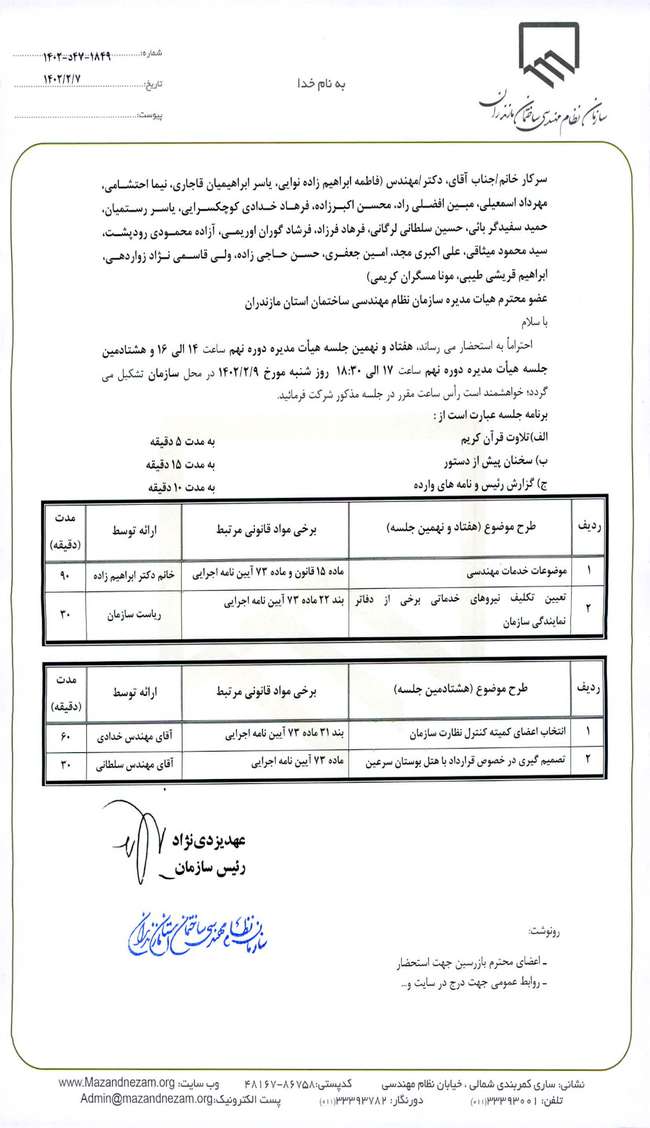 سازمان نظام مهندسی ساختمان مازندران
به نام خدا
شماره: ۱۸۴۹-۴۷د-۱۴۰۲
تاریخ: ۱۴۰۲/۲/۷
پیوست:
سرکار خانم/جناب آقای، دکتر/مهندس (فاطمه ابراهیم زاده نوایی، یاسر ابراهیمیان قاجاری، نیما احتشامی،
مهرداد اسمعیلی، مبین افضلی راد، محسن اکبرزاده، فرهاد خدادی کوچکسرایی، یاسر رستمیان،
حمید سفیدگر بائی، حسین سلطانی لرگانی، فرهاد فرزاد، فرشاد گوران اوریمی، آزاده محمودی رودپشت،
سید محمود میثاقی، علی اکبری مجد، امین جعفری، حسن حاجی زاده، ولی قاسمی نژاد زواردهی،
ابراهیم قریشی طیبی، مونا مسگران کریمی)
عضو محترم هیات مدیره سازمان نظام مهندسی ساختمان استان مازندران
با سلام
احتراماً به استحضار می رساند، هفتاد و نهمین جلسه هیأت مدیره دوره نهم ساعت ۱۴ الی ۱۶ و هشتادمین
جلسه هیأت مدیره دوره نهم ساعت ۱۷ الی ۱۸:۳۰ روز شنبه مورخ ۱۴۰۲/۲/۹ در محل سازمان تشکیل می
گردد؛ خواهشمند است رأس ساعت مقرر در جلسه مذکور شرکت فرمائید.
برنامه جلسه عبارت است از :
الف)تلاوت قرآن کریم به مدت ۵ دقیقه
ب) سخنان پیش از دستور به مدت ۱۵ دقیقه
ج) گزارش رئیس و نامه های وارده به مدت ۱۰ دقیقه
ردیف طرح موضوع (هفتاد و نهمین جلسه) برخی مواد قانونی مرتبط ارائه توسط مدت (دقیقه)
۱ موضوعات خدمات مهندسی ماده ۱۵ قانون و ماده ۷۳ آیین نامه اجرایی خانم دکتر ابراهیم زاده ۹۰
۲ تعیین تکلیف نیروهای خدماتی برخی از دفاتر بند ۲۲ ماده ۷۳ آیین نامه اجرایی ریاست سازمان ۳۰
نمایندگی سازمان
ردیف طرح موضوع (هشتادمین جلسه) برخی مواد قانونی مرتبط ارائه توسط مدت (دقیقه)
۱ انتخاب اعضای کمیته کنترل نظارت سازمان بند ۳۱ ماده ۷۳ آیین نامه اجرایی آقای مهندس خدادی ۶۰
۲ تصمیم گیری در خصوص قرارداد با هتل بوستان سرعین ماده ۷۳ آیین نامه اجرایی آقای مهندس سلطانی ۳۰
عهدیزدی‌نژاد
رئیس سازمان
سازمان نظام مهندسی ساختمان استان مازندران
رونوشت:
ـ اعضای محترم بازرسین جهت استحضار
ـ روابط عمومی جهت درج در سایت و...
نشانی: ساری کمربندی شمالی ، خیابان نظام مهندسی کدپستی:۸۶۷۵۸-۴۸۱۶۷ وب سایت: www.Mazandnezam.org
تلفن: ۳۳۳۹۳۰۰۱(۰۱۱) دورنگار: ۳۳۳۹۳۷۸۲(۰۱۱) پست الکترونیک:Admin@mazandnezam.org